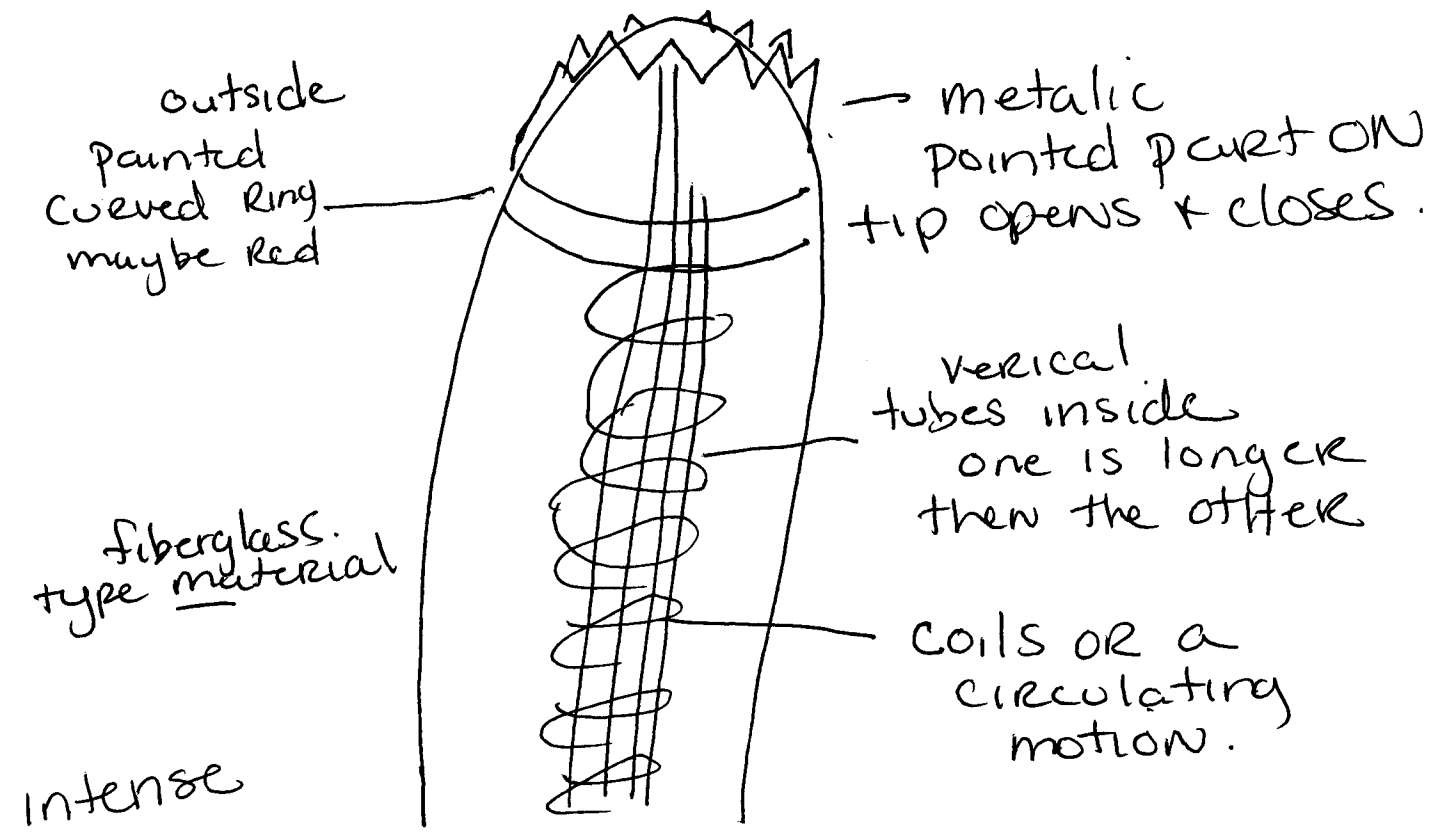 outside
painted
curved Ring
maybe Red
metalic
pointed part ON
tip opens & closes.
verical
tubes inside
one is longer
then the other
fiberglass.
type material
coils OR a
circulating
motion.
intense